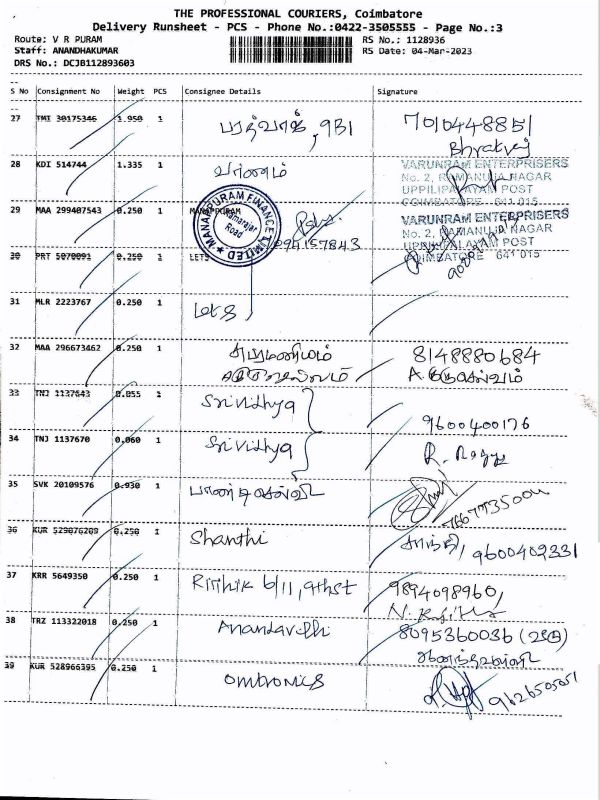 THE PROFESSIONAL COURIERS, Coimbatore
Delivery Runsheet - PCS - Phone No.:0422-3505555 - Page No.:3
Route: V R PURAM
RS No.: 1128936
Staff: ANANDHAKUMAR
RS Date: 04-Mar-2023
DRS No.: DCJB112893603
S No Consignment No Weight PCS Consignee Details Signature
27 TMI 30175346 1.950 1 , 9B1 7010448851
28 KDI 514744 1.335 1 வாணம்
VARUNRAM ENTERPRISERS
No. 2, RAMANUJA NAGAR
UPPILIPALAYAM POST
COIMBATORE - 641 015
29 MAA 299407543 0.250 1 MANAPPURAM
MANAPPURAM FINANCE LIMITED
Kamarajar
Road
VARUNRAM ENTERPRISERS
No. 2, RAMANUJA NAGAR
UPPILIPALAYAM POST
COIMBATORE - 641 015
30 PRT 5070091 0.250 1 LETS
31 MLR 2223767 0.250 1
32 MAA 296673462 0.250 1 8148880684
33 TNJ 1137643 0.055 1 Srividhya 9600400176
34 TNJ 1137670 0.060 1 Srividhya
35 SVK 20109576 0.930 1
36 KUR 529076209 0.250 1 Shanthi சாந்தி, 9600402331
37 KRR 5649350 0.250 1 Rithik 6/11, 9th st 9894098960,
38 TRZ 113322018 0.250 1 Anandavalli 8095360036
ஆனந்தவல்லி
39 KUR 528966395 0.250 1 ombronics 9626505051